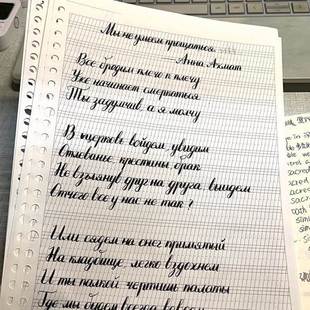 Мы не умеем прощаться
Анна Ахмат
Все бродим плечо к плечу
Уже начинает смеркаться
Ты задумчив, а я молчу
В церковь войдем, увидим
Отпевание, крестины, брак
Не взглянув друг на друга, выйдем
Отчего все у нас не так?
Или сядем на снег примятый
На кладбище, легко вздохнем
И ты палкой чертишь палаты
Где мы будем всегда вдвоем
sacred
sacred